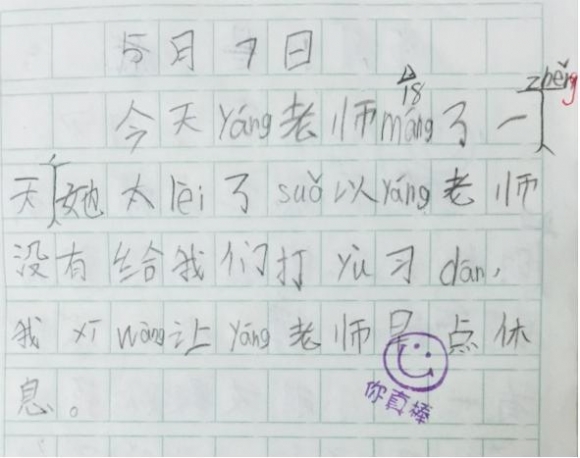 5月7日
今天yáng老师máng了一zhěng
天她太lèi了suǒ以yáng老师
没有给我们打yù习dān,
我xīwàng让yáng老师早点休
息。
你真棒